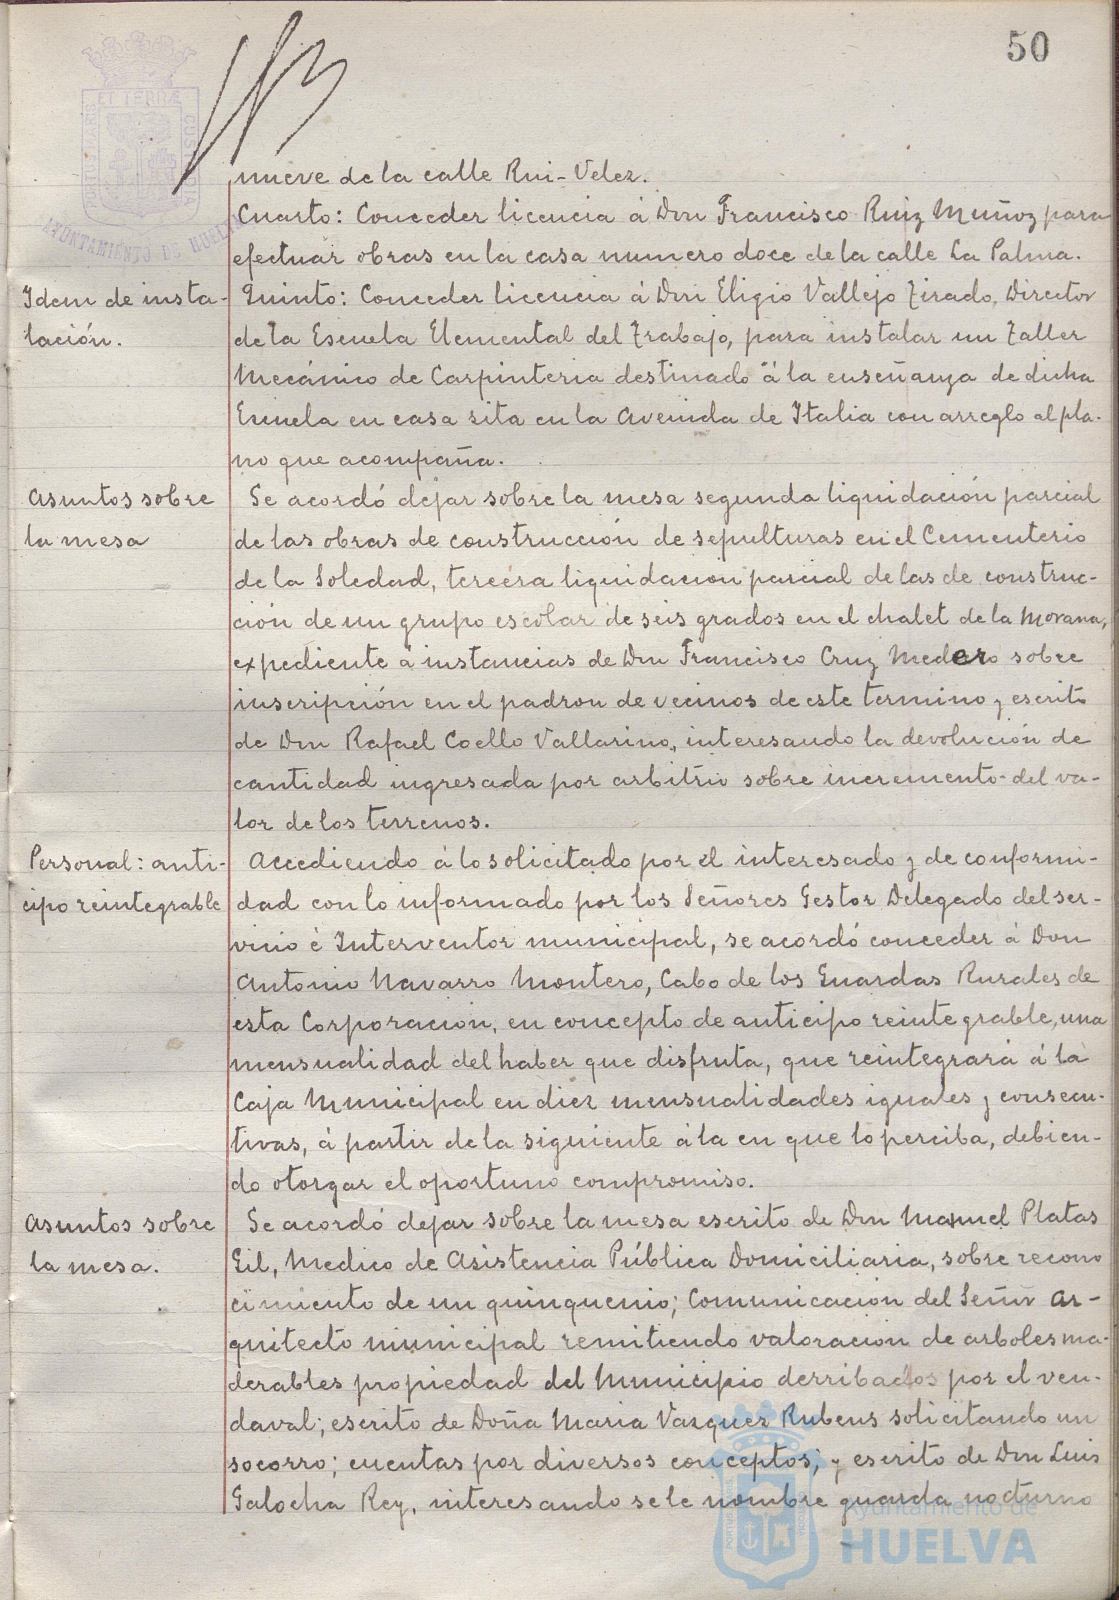 50
PORTUS MARIS
ET TERRÆ
CUSTODIA
AYUNTAMIENTO DE HUELVA
nueve de la calle Rui-Velez.
Cuarto: Conceder licencia á Don Francisco Ruiz Muñoz para
efectuar obras en la casa numero doce de la calle La Palma.
Idem de insta-
lación.
Quinto: Conceder licencia á Don Eligio Vallejo Tirado, Director
de la Escuela Elemental del Trabajo, para instalar un Taller
Mecánico de Carpinteria destinado á la enseñanza de dicha
Escuela en casa sita en la Avenida de Italia con arreglo al pla-
no que acompaña.
Asuntos sobre
la mesa
Se acordó dejar sobre la mesa segunda liquidación parcial
de las obras de construcción de sepulturas en el Cementerio
de la Soledad, tercera liquidacion parcial de las de construc-
ción de un grupo escolar de seis grados en el chalet de la Morana,
expediente á instancias de Don Francisco Cruz Medero sobre
inscripción en el padron de vecinos de este termino y escrito
de Don Rafael Coello Vallarino, interesando la devolución de
cantidad ingresada por arbitrio sobre incremento del va-
lor de los terrenos.
Personal: anti-
cipo reintegrable
Accediendo á lo solicitado por el interesado y de conformi-
dad con lo informado por los Señores Gestor Delegado del ser-
vicio é Interventor municipal, se acordó conceder á Don
Antonio Navarro Montero, Cabo de los Guardas Rurales de
esta Corporación, en concepto de anticipo reintegrable, una
mensualidad del haber que disfruta, que reintegrará á la
Caja Municipal en diez mensualidades iguales y consecu-
tivas, á partir de la siguiente á la en que lo perciba, debien-
do otorgar el oportuno compromiso.
Asuntos sobre
la mesa.
Se acordó dejar sobre la mesa escrito de Don Manuel Platas
Gil, Medico de Asistencia Pública Domiciliaria, sobre recono
cimiento de un quinquenio; Comunicación del Señor Ar-
quitecto municipal remitiendo valoración de arboles ma-
derables propiedad del Municipio derribados por el ven-
daval; escrito de Doña Maria Vazquez Rubens solicitando un
socorro; cuentas por diversos conceptos; y escrito de Don Luis
Galocha Rey, interesando se le nombre guarda nocturno
Ayuntamiento de
HUELVA